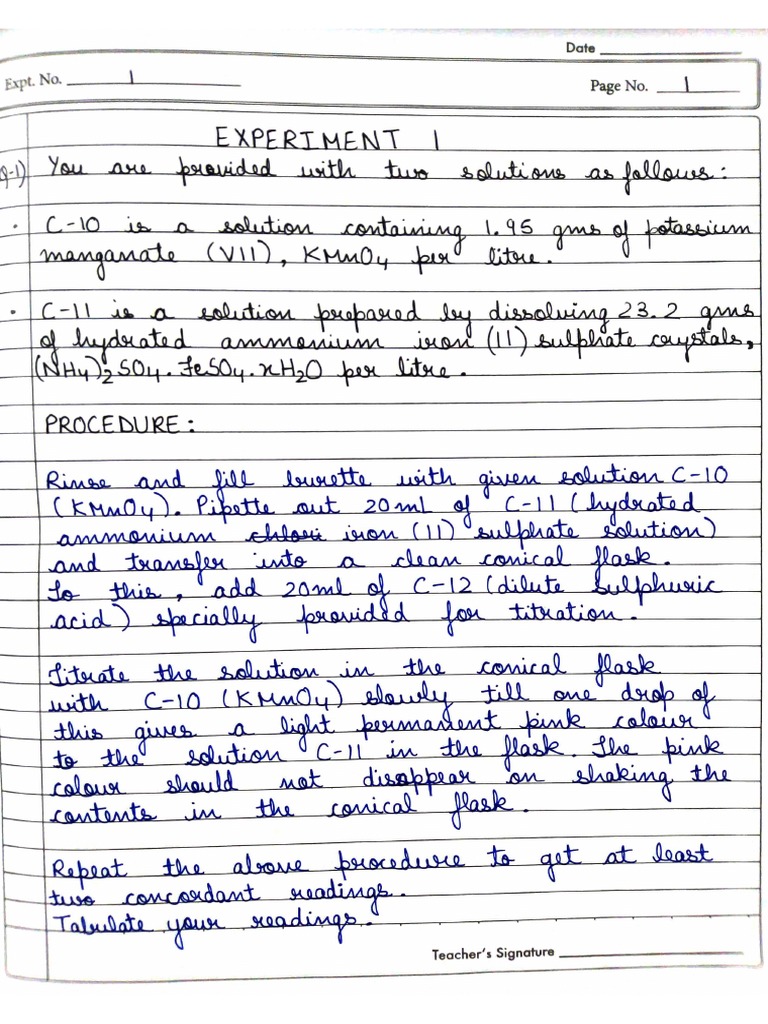 Date
Expt. No. 1
Page No. 1
EXPERIMENT 1
Q-1) You are provided with two solutions as follows:
• C-10 is a solution containing 1.95 gms of potassium
manganate (VII), KMnO4 per litre.
• C-11 is a solution prepared by dissolving 23.2 gms
of hydrated ammonium iron (II) sulphate crystals,
(NH4)2SO4.FeSO4.xH2O per litre.
PROCEDURE:
Rinse and fill burette with given solution C-10
(KMnO4). Pipette out 20ml of C-11 (hydrated
ammonium chlori iron (II) sulphate solution)
and transfer into a clean conical flask.
To this, add 20ml of C-12 (dilute sulphuric
acid) specially provided for titration.
Titrate the solution in the conical flask
with C-10 (KMnO4) slowly till one drop of
this gives a light permanent pink colour
to the solution C-11 in the flask. The pink
colour should not disappear on shaking the
contents in the conical flask.
Repeat the above procedure to get at least
two concordant readings.
Tabulate your readings.
Teacher's Signature